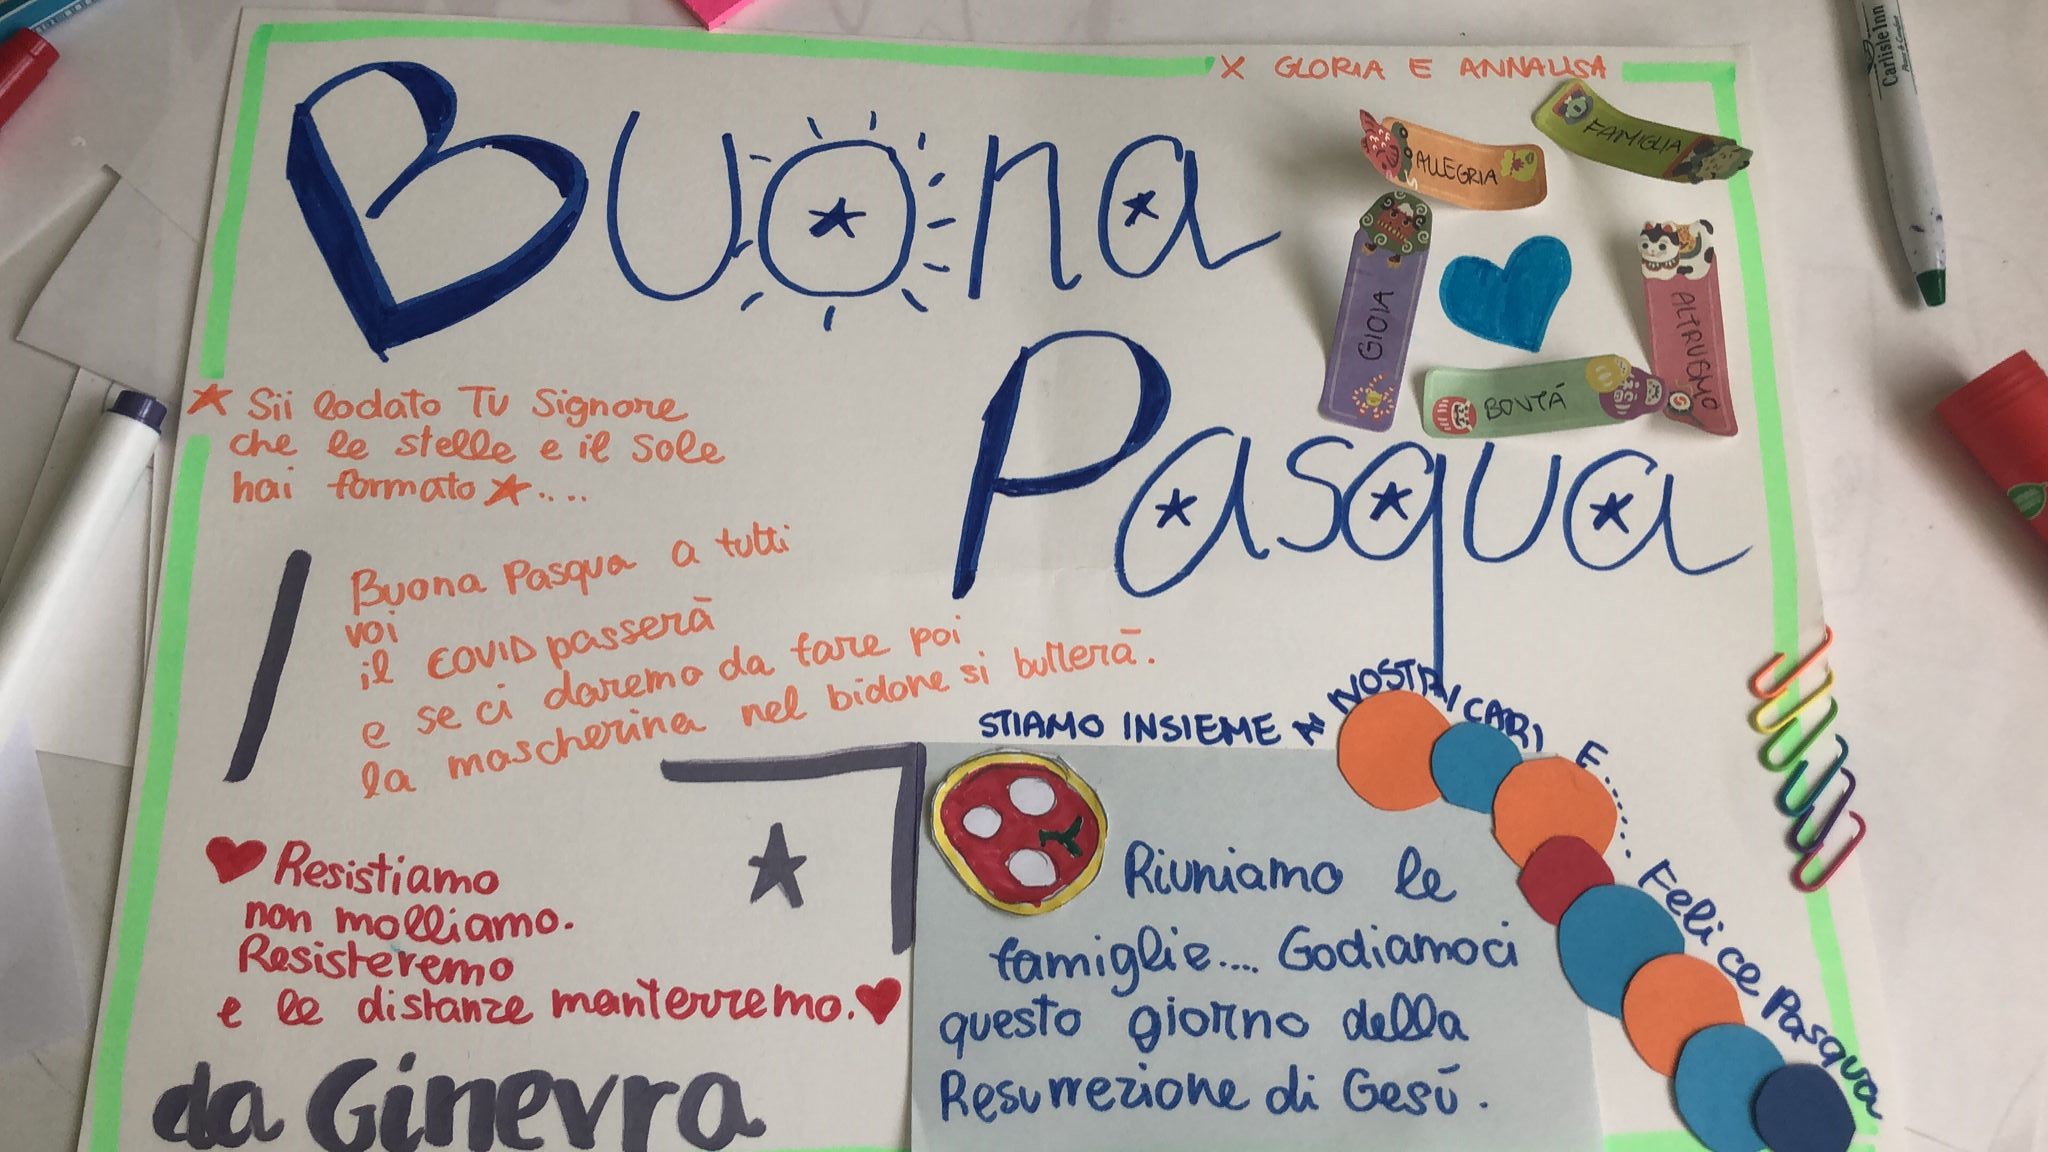 x GLORIA E ANNALISA
Buona
Pasqua
ALLEGRIA
FAMIGLIA
GIOIA
ALTRUISMO
BONTÁ
Sii lodato Tu Signore
che le stelle e il Sole
hai formato ....
Buona Pasqua a tutti
voi
il COVID passerà
e se ci daremo da fare poi
la mascherina nel bidone si butterà.
STIAMO INSIEME AI NOSTRI CARI E...... Felice Pasqua
Resistiamo
non molliamo.
Resisteremo
e le distanze manterremo.
Riuniamo le
famiglie.... Godiamoci
questo giorno della
Resurrezione di Gesù.
da Ginevra
Carlisle Inn